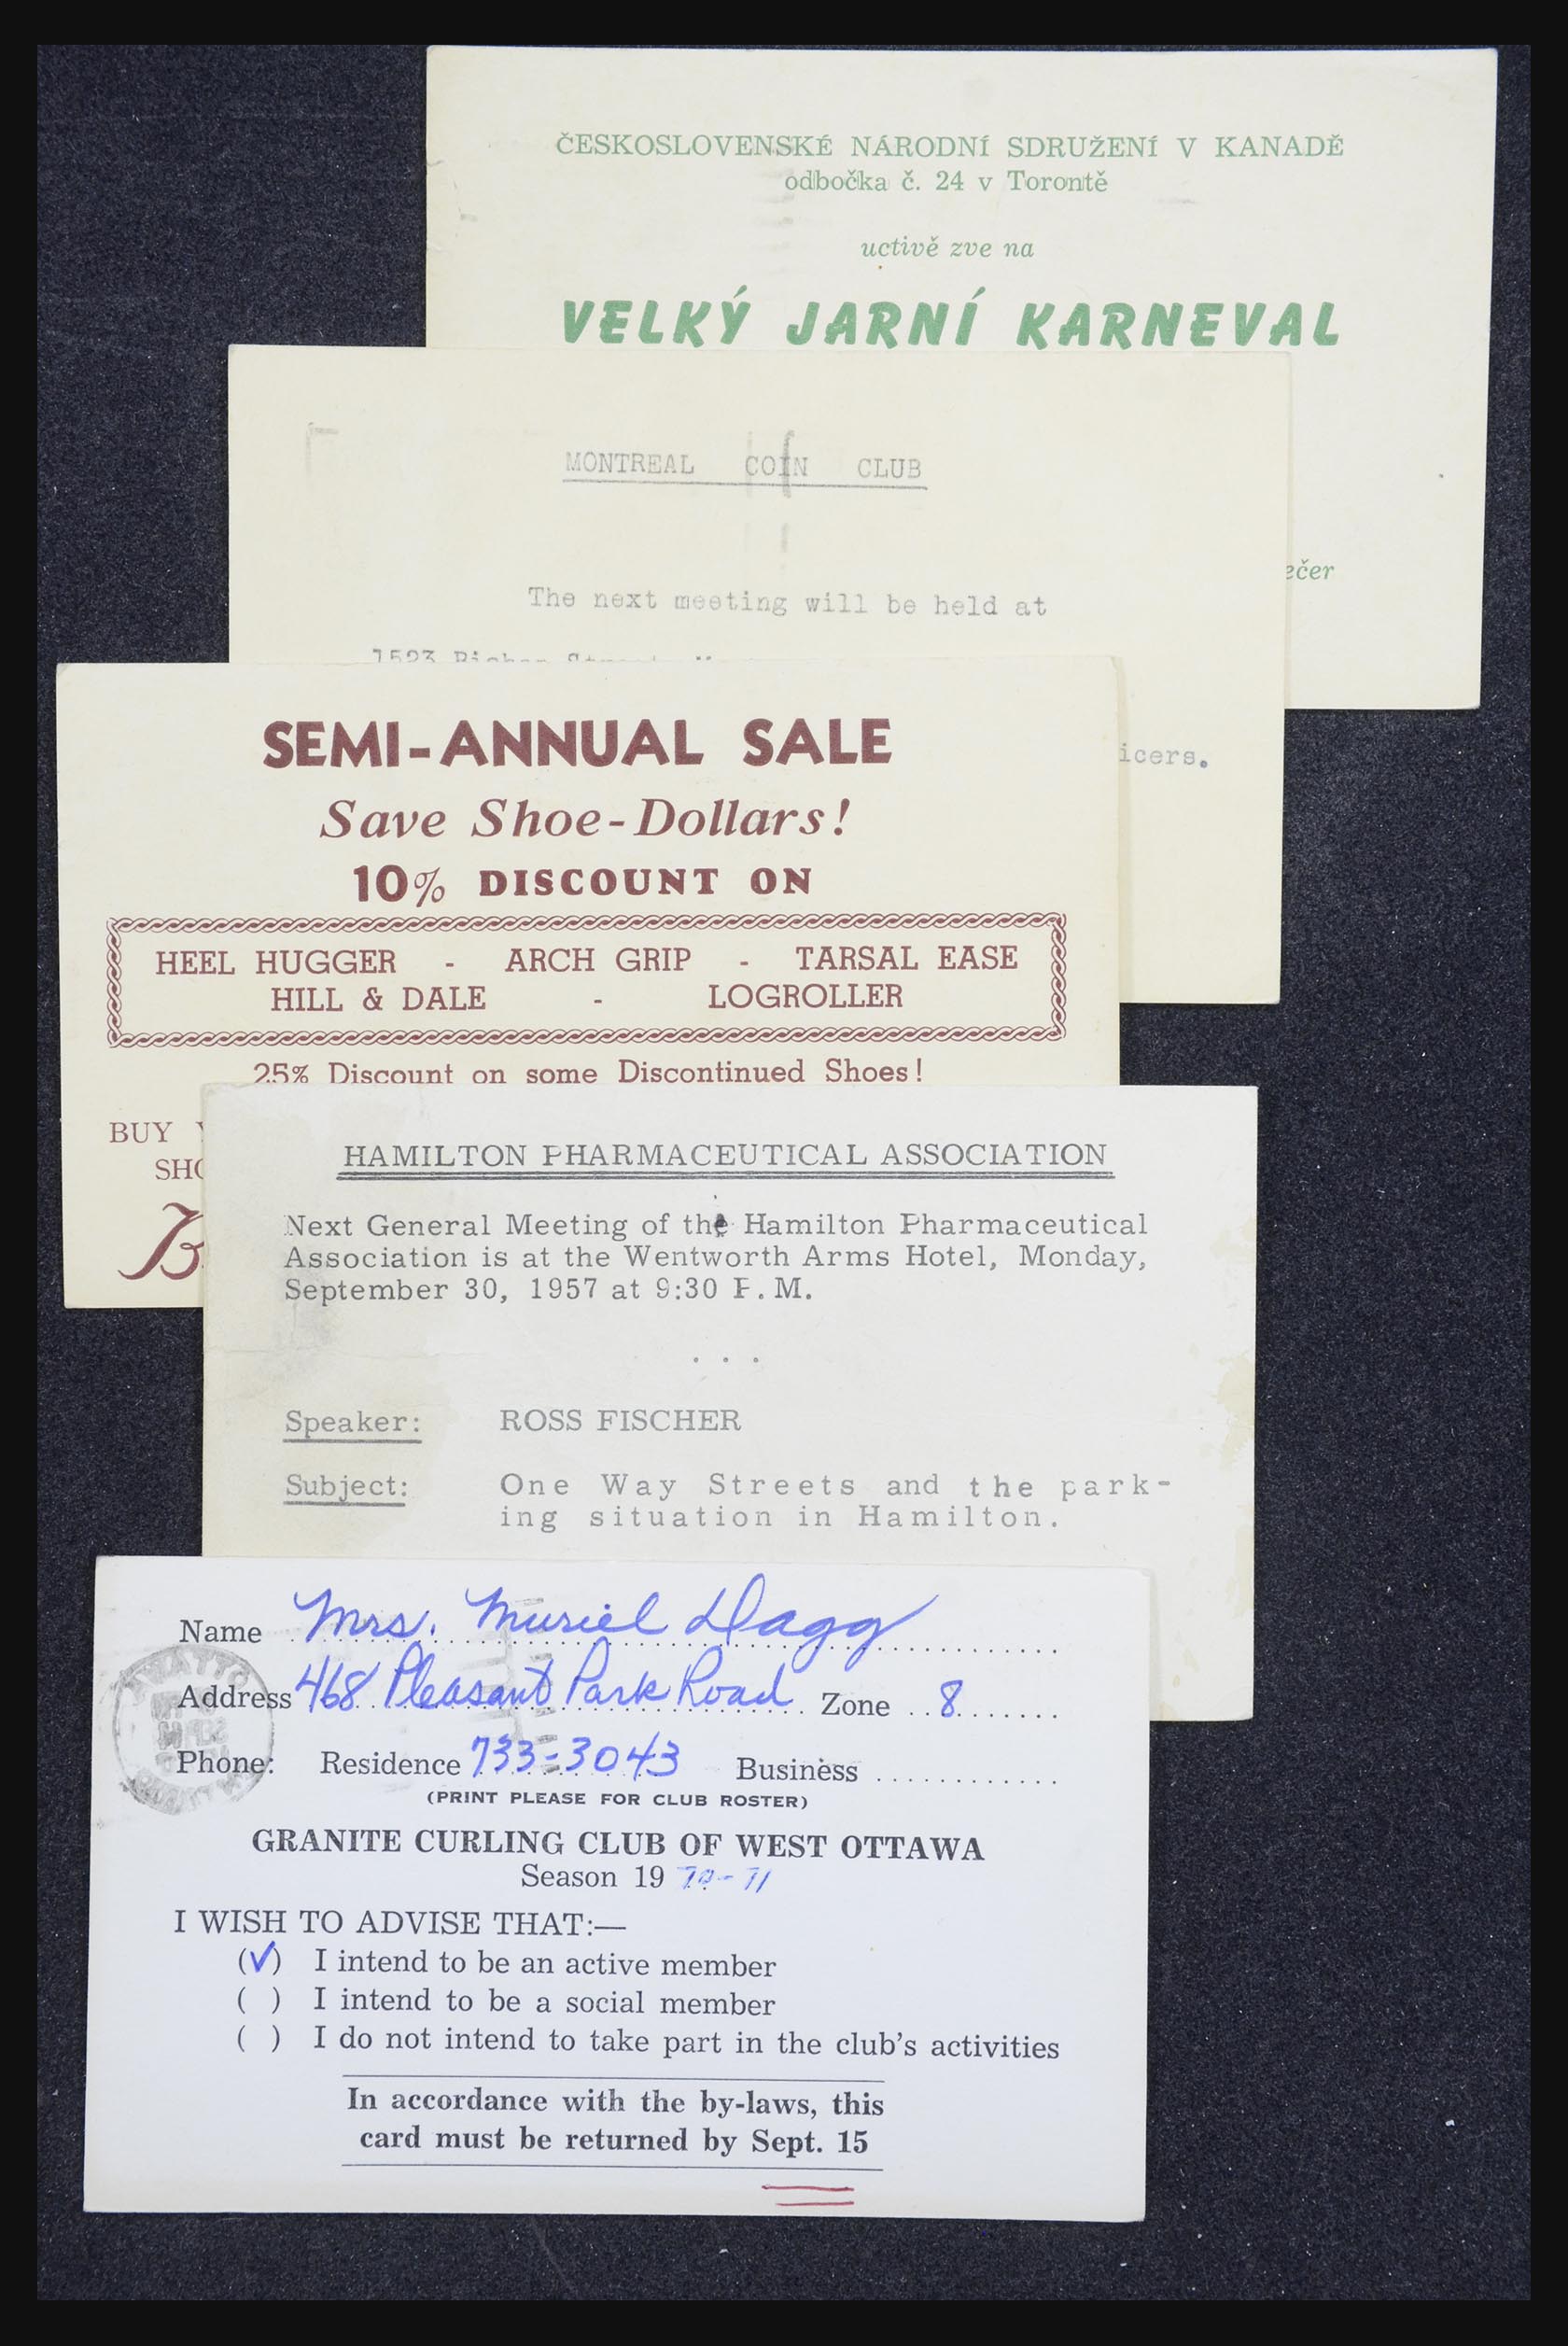 ČESKOSLOVENSKÉ NÁRODNÍ SDRUŽENÍ V KANADĚ
odbočka č. 24 v Torontě
uctivě zve na
VELKÝ JARNÍ KARNEVAL
ečer
MONTREAL COIN CLUB
The next meeting will be held at
icers.
SEMI-ANNUAL SALE
Save Shoe-Dollars!
10% DISCOUNT ON
HEEL HUGGER - ARCH GRIP - TARSAL EASE
HILL & DALE - LOGROLLER
25% Discount on some Discontinued Shoes!
BUY
SHO
B
HAMILTON PHARMACEUTICAL ASSOCIATION
Next General Meeting of the Hamilton Pharmaceutical
Association is at the Wentworth Arms Hotel, Monday,
September 30, 1957 at 9:30 P.M.
. . .
Speaker: ROSS FISCHER
Subject: One Way Streets and the park-
ing situation in Hamilton.
Name Mrs. Muriel Dagg
Address 468 Pleasant Park Road Zone 8
Phone: Residence 733-3043 Business
(PRINT PLEASE FOR CLUB ROSTER)
GRANITE CURLING CLUB OF WEST OTTAWA
Season 19 70-71
I WISH TO ADVISE THAT:—
(✓) I intend to be an active member
( ) I intend to be a social member
( ) I do not intend to take part in the club's activities
In accordance with the by-laws, this
card must be returned by Sept. 15